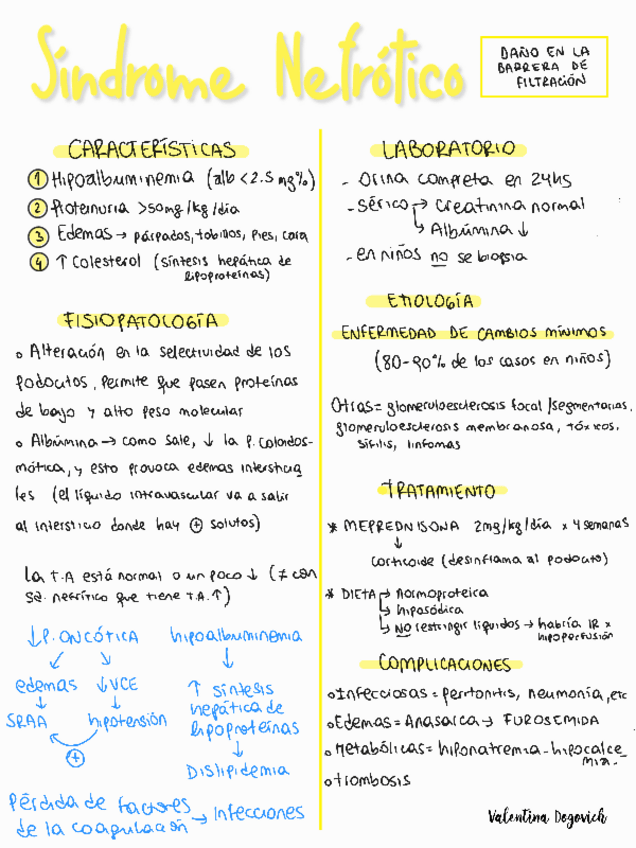 Síndrome Nefrótico
DAÑO EN LA
BARRERA DE
FILTRACIÓN
CARACTERÍSTICAS
1 Hipoalbuminemia (alb <2.5 mg%)
2 Proteinuria >50mg/kg/día
3 Edemas → párpados, tobillos, pies, cara
4 ↑ Colesterol (síntesis hepática de
lipoproteínas)
FISIOPATOLOGÍA
o Alteración en la selectividad de los
podocitos, permite que pasen proteínas
de bajo y alto peso molecular
o Albúmina → como sale, ↓ la p. coloidos-
mótica, y esto provoca edemas intersticia
les (el líquido intravascular va a salir
al intersticio donde hay ⊕ solutos)
La T.A está normal o un poco ↓ (≠ con
sd. nefrítico que tiene T.A.↑)
↓P. ONCÓTICA
edemas ↓VCE
SRAA hipotensión
⊕
hipoalbuminemia
↓
↑ síntesis
hepática de
lipoproteínas
↓
Dislipidemia
Pérdida de factores
de la coagulación → Infecciones
LABORATORIO
- Orina completa en 24hs
- Sérico → Creatinina normal
→ Albúmina ↓
- en niños no se biopsia
ETIOLOGÍA
ENFERMEDAD DE CAMBIOS MÍNIMOS
(80-90% de los casos en niños)
Otras = glomeruloesclerosis focal/segmentarias,
glomeruloesclerosis membranosa, tóxicos,
sífilis, linfomas
TRATAMIENTO
* MEPREDNISONA 2mg/kg/día x 4 semanas
↓
corticoide (desinflama al podocito)
* DIETA → Normoproteica
→ hiposódica
→ NO restringir líquidos → habría IR x
hipoperfusión
COMPLICACIONES
o Infecciosas = peritonitis, neumonía, etc
o Edemas = Anasarca → FUROSEMIDA
o Metabólicas = hiponatremia - hipocalce
mia.
o trombosis
Valentina Dogovich